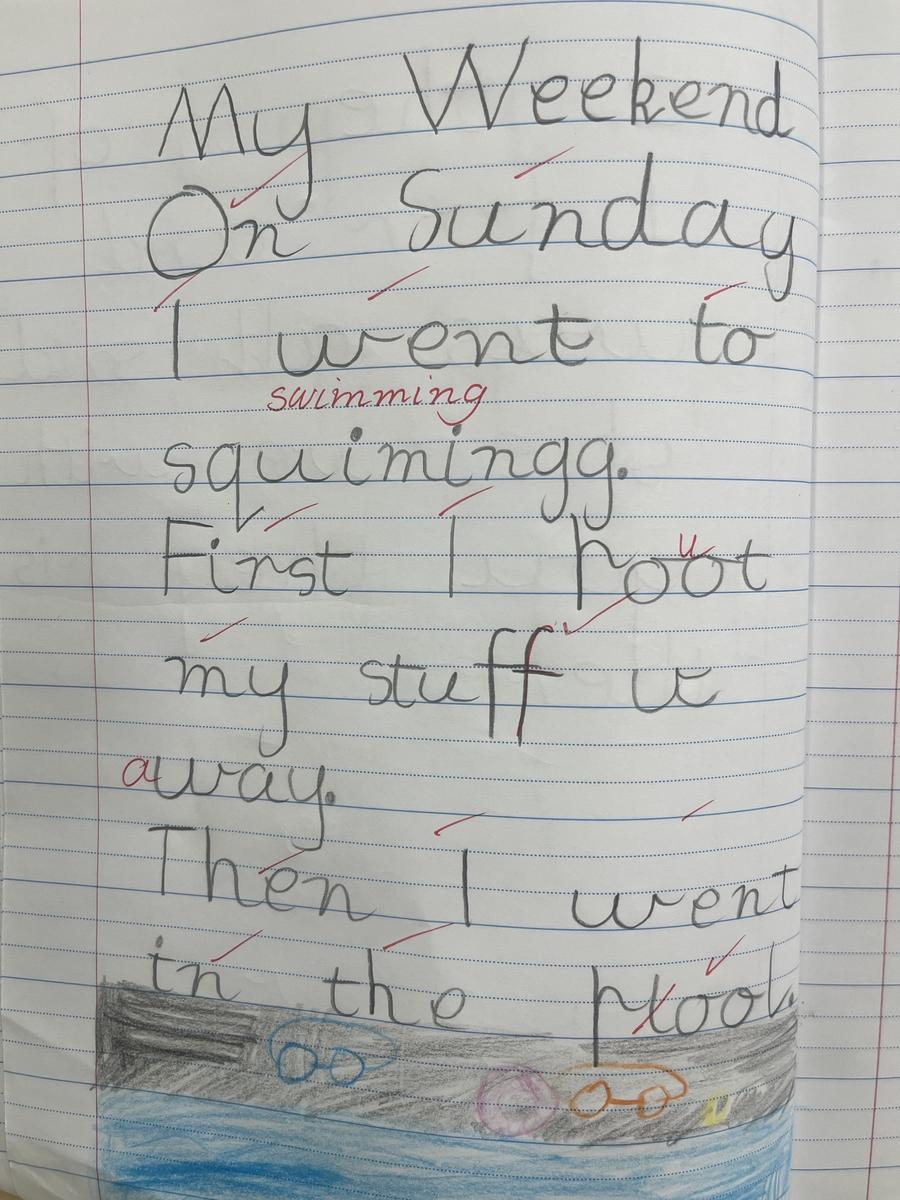 My Weekend
On Sunday
I went to
swimming
squimingg.
First I poot
u
my stuff w
away.
Then I went
in the pool.